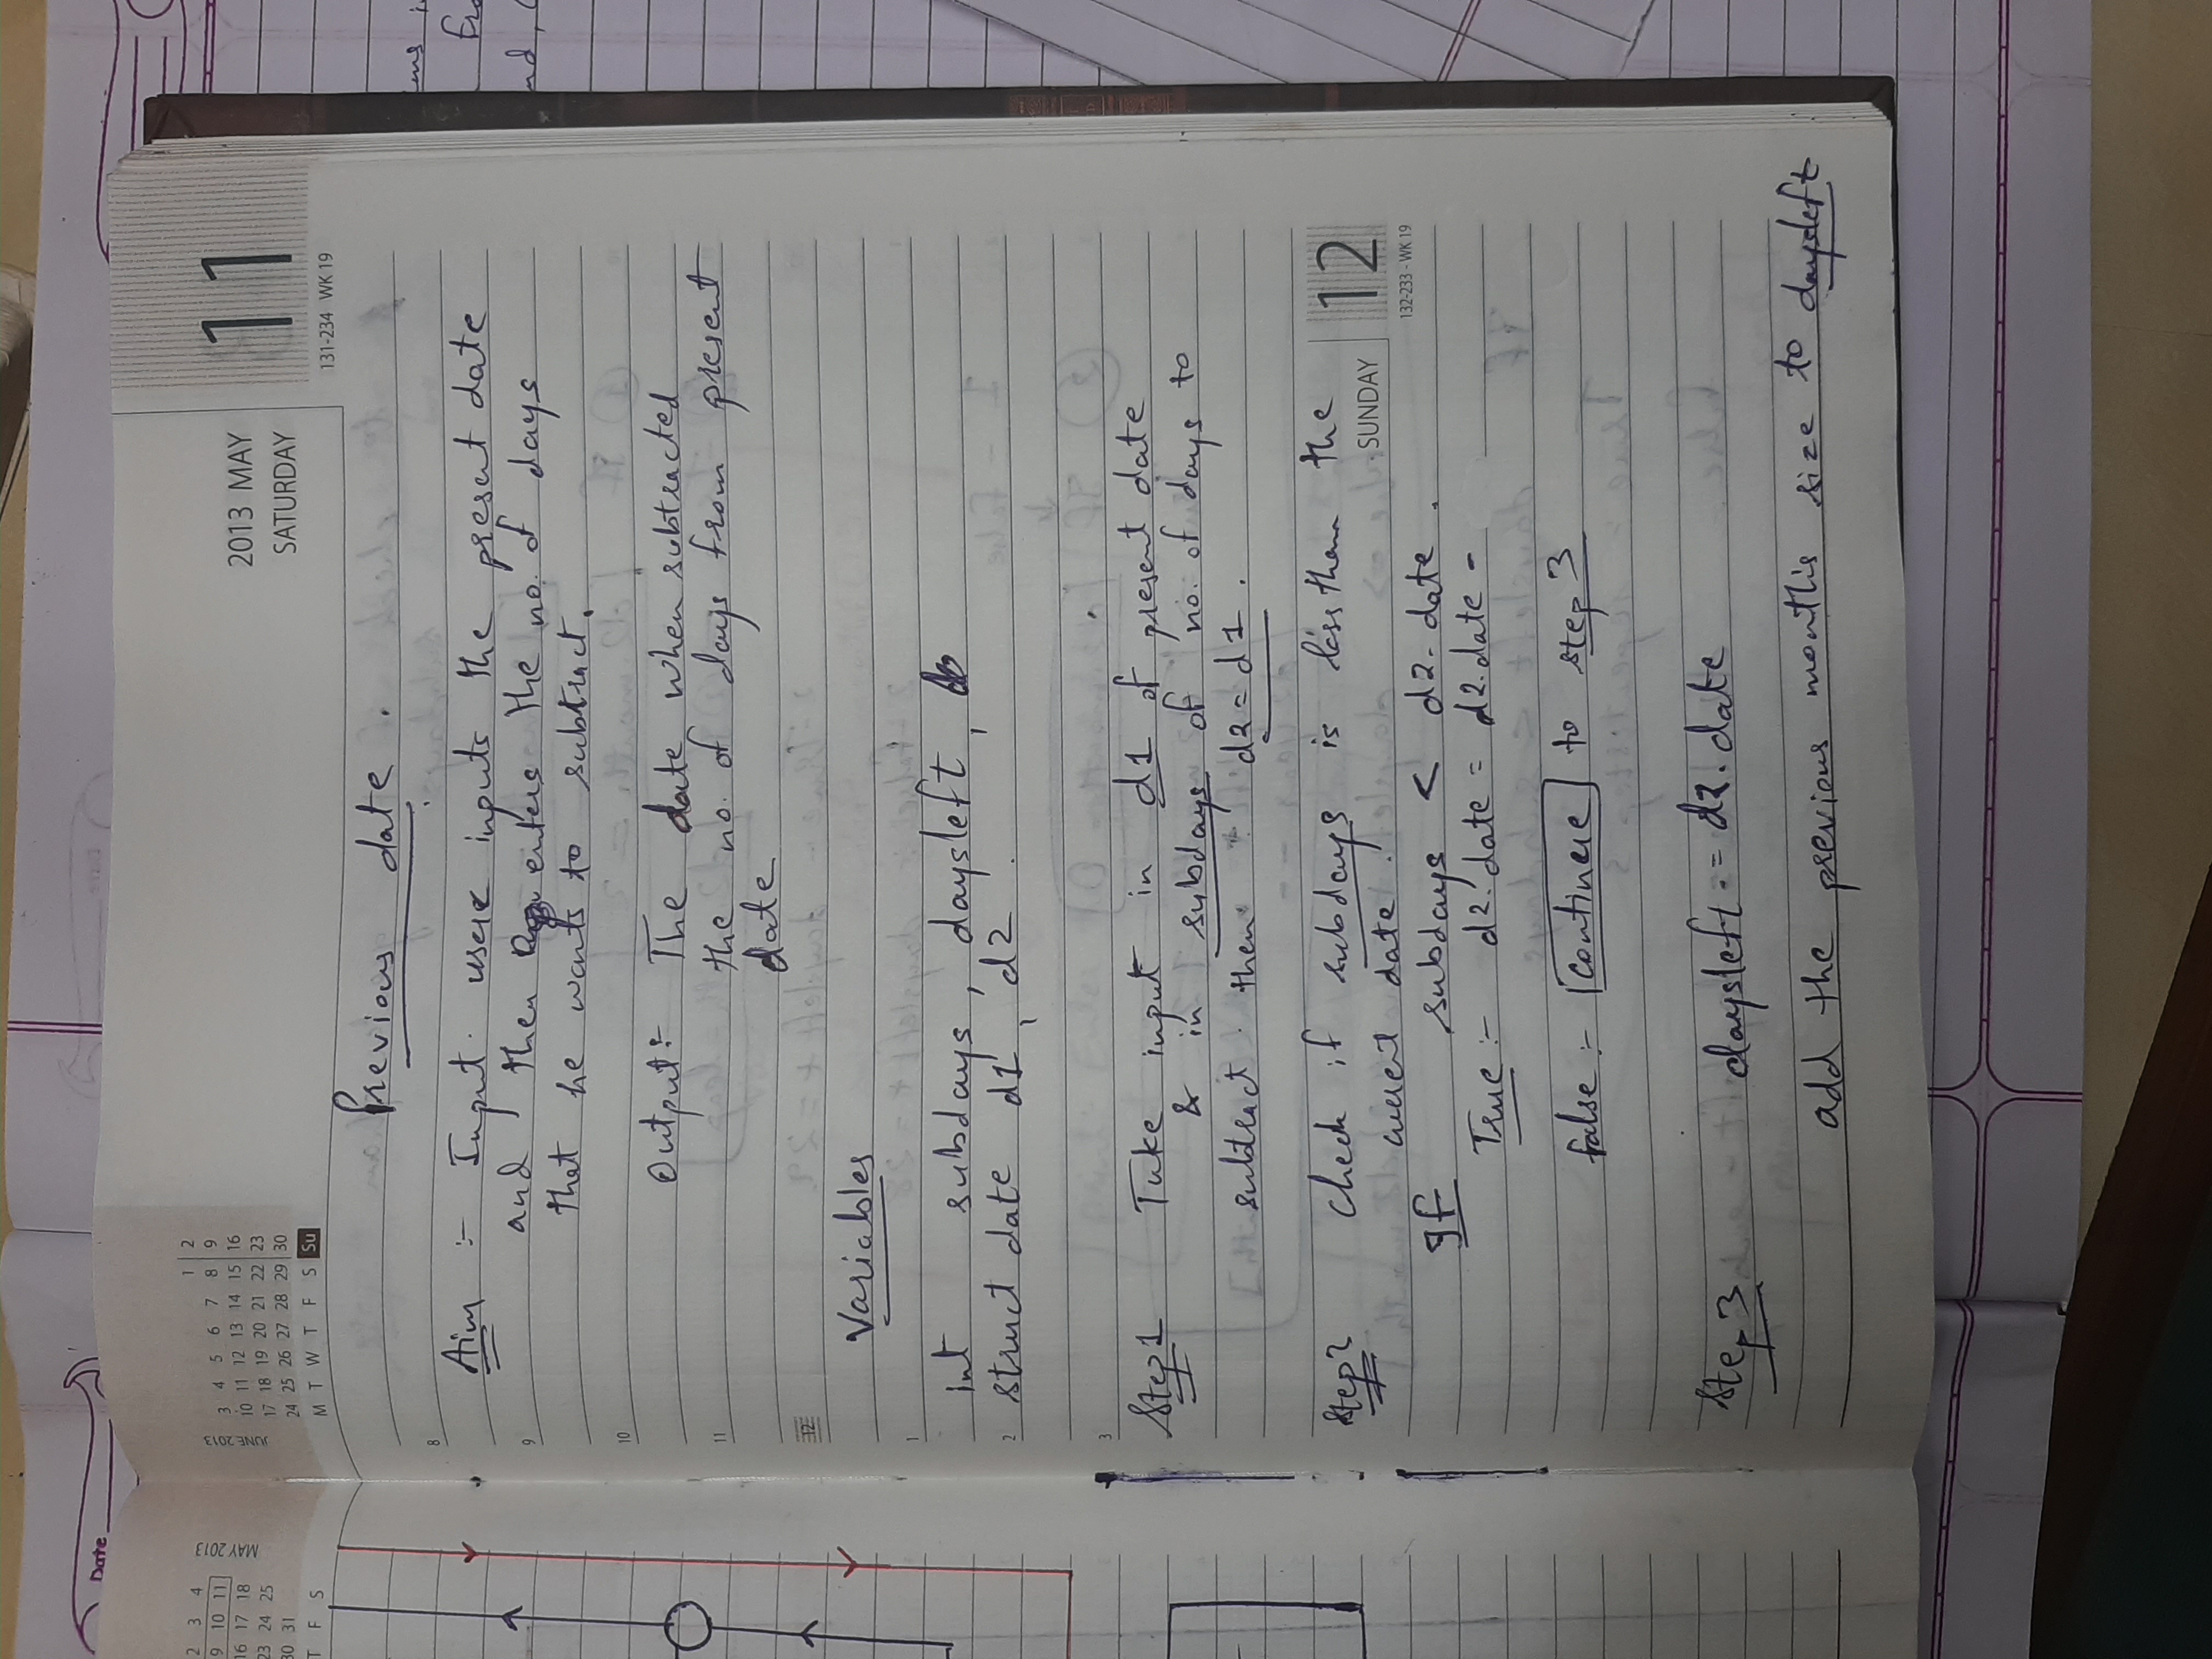 Date
2 3 4
9 10 11
16 17 18
23 24 25
30 31
T F S
MAY 2013
JUNE 2013
1 2
3 4 5 6 7 8 9
10 11 12 13 14 15 16
17 18 19 20 21 22 23
24 25 26 27 28 29 30
M T W T F S Su
2013 MAY
SATURDAY
11
131-234 WK 19
Previous date .
8
Aim :- Input user inputs the present date
9
and then enters the no. of days
that he wants to subtract.
10
Output :- The date when subtracted
11
the no. of days from present
date
12
Variables
1
int subdays, daysleft,
2
struct date d1, d2 .
3
Step1 Take input in d1 of present date
& in subdays of no. of days to
subtract then d2 = d1 .
Step2 Check if subdays is less than the
SUNDAY
12
132-233 - WK 19
current date .
If subdays < d2.date .
True :- d2.date = d2.date -
false :- continue to step 3
Step 3 daysleft = d2.date
add the previous month's size to daysleft